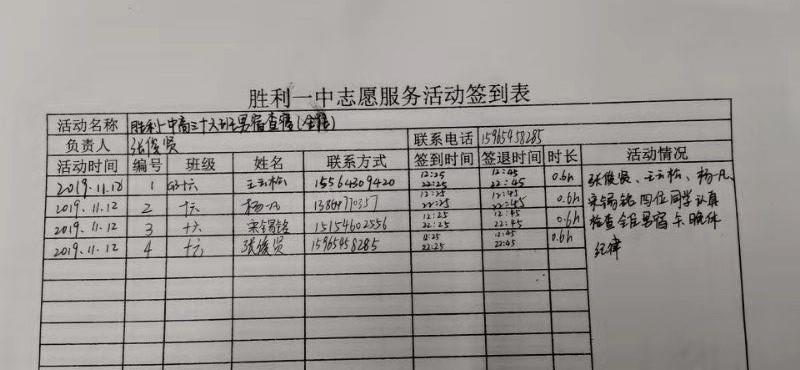 胜利一中志愿服务活动签到表
活动名称 胜利一中高三十六班男宿查宿(全程)
负责人 张俊贤 联系电话 15965458285
活动时间 编号 班级 姓名 联系方式 签到时间 签退时间 时长 活动情况
12:25 12:45
2019.11.12 1 十六 王云松 15564309420 22:25 22:45 0.6h 张俊贤、王云松、杨一凡、
12:25 12:45
2019.11.12 2 十六 杨一凡 13864770357 22:25 22:45 0.6h 宋锡铭四位同学认真
12:25 12:45
2019.11.12 3 十六 宋锡铭 15154602556 22:25 22:45 0.6h 检查全程男宿午晚休
12:25 12:45
2019.11.12 4 十六 张俊贤 15965458285 22:25 22:45 0.6h 纪律